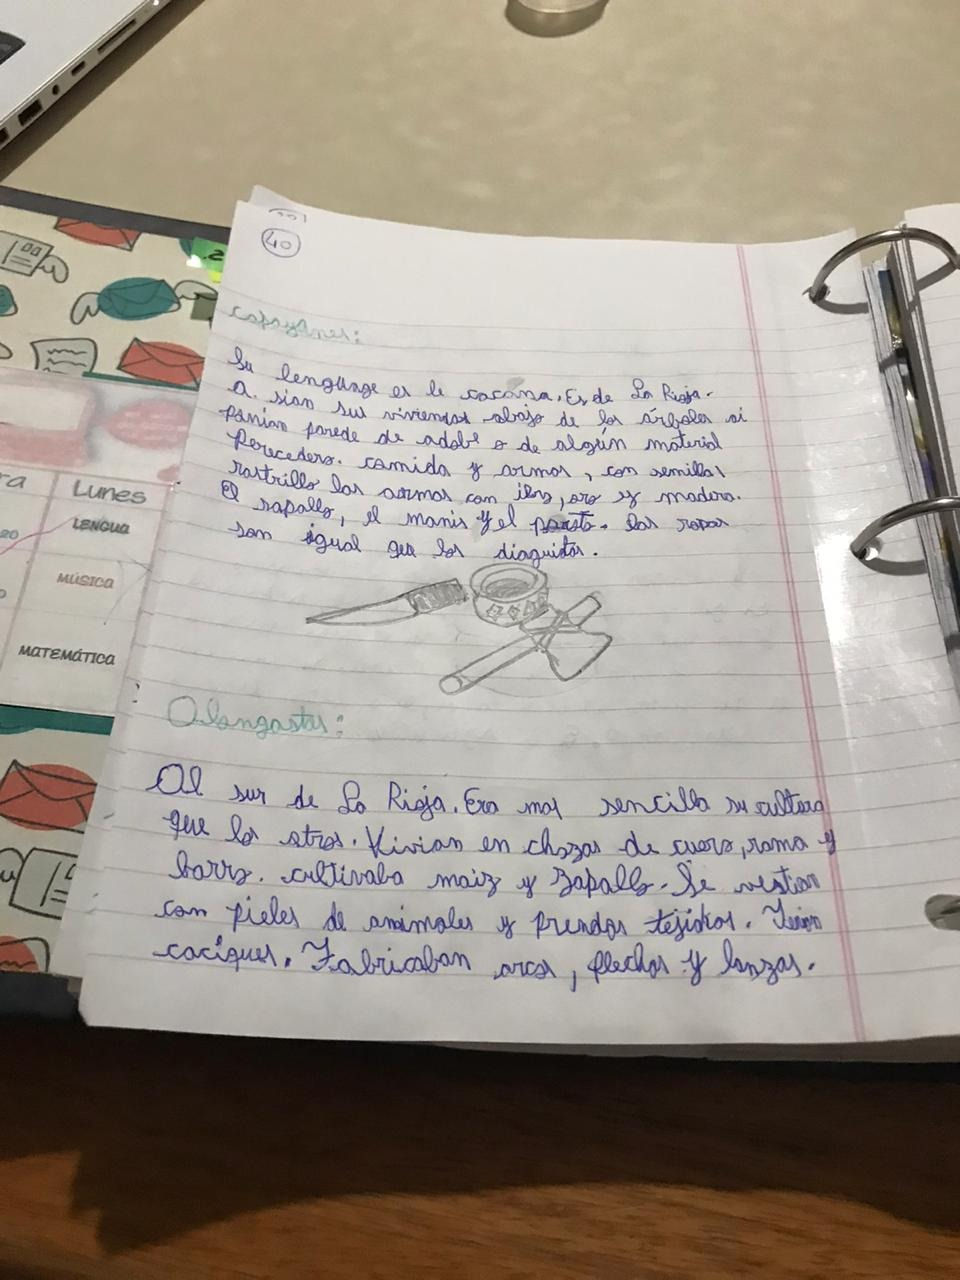 40
Capayanes:
Su lenguage es le cacana. Es de La Rioja.
A sian sus viviendas abajo de los árboles ai
panian parede de adobe o de algún material
Percedero. camida y armas, con semillas
rastrillo las aarmas con ilno, oro y madera.
El sapallo, el manis y el. las ropas
son igual que los diaguitas.
Olongastas:
Al sur de La Rioja. Era mas sencilla su cultura
que los otros. Vivian en chozas de cuero, rama y
barro. cultivaba maiz y zapallo. Se vestian
con pieles de animales y prendas tejidos. Tenian
caciques. Fabricaban arcos, flechas y lanzas.
ra Lunes
20 LENGUA
MÚSICA
MATEMÁTICA